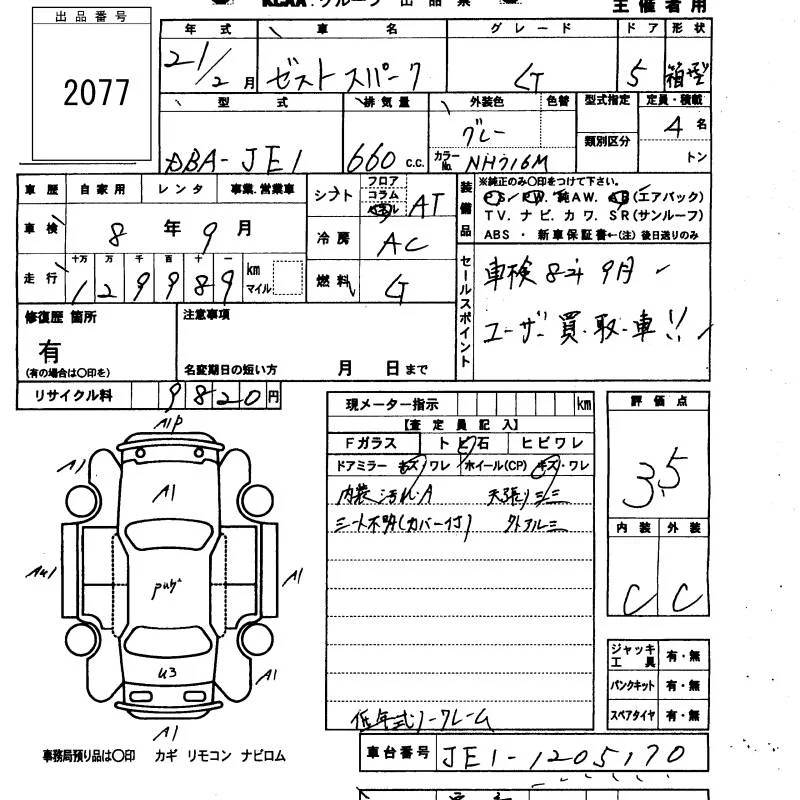 KCAA・グループ 出品票
主催者用
出品番号
2077
年式 車名 グレード ドア 形状
21/2月 ゼスト スパーク G 5 箱型
型式 排気量 外装色 色替 型式指定 定員・積載
DBA-JE1 660 c.c. グレー カラーNo. NH716M 類別区分 4名 トン
車歴 自家用 レンタ 事業.営業車
車検 8年9月
走行 十万 万 千 百 十 一
129989 km マイル
シフト フロア コラム パネル AT
冷房 AC
燃料 G
装備品 ※純正のみ〇印をつけて下さい。
PS/PW.純AW.AB(エアバック)
TV.ナビ.カワ.SR(サンルーフ)
ABS・新車保証書←(注)後日送りのみ
セールスポイント
車検8年9月
ユーザー買.取.車!!
修復歴 箇所
有
(有の場合は〇印を)
注意事項
名変期日の短い方 月 日まで
リサイクル料 9820円
現メーター指示 km
【査定員記入】
Fガラス トビ石 ヒビワレ
ドアミラー キズ/ワレ ホイール(CP) キズ・ワレ
内装汚れ.A 天張りシミ
シート不明(カバー付) 外アルミ
低年式ノークレーム
評価点
3.5
内装 外装
C C
ジャッキ工具 有・無
パンクキット 有・無
スペアタイヤ 有・無
車台番号 JE1-1205170
A1P
A1
A1
AU1
A1
U3
A1
A1
事務局預り品は〇印 カギ リモコン ナビロム